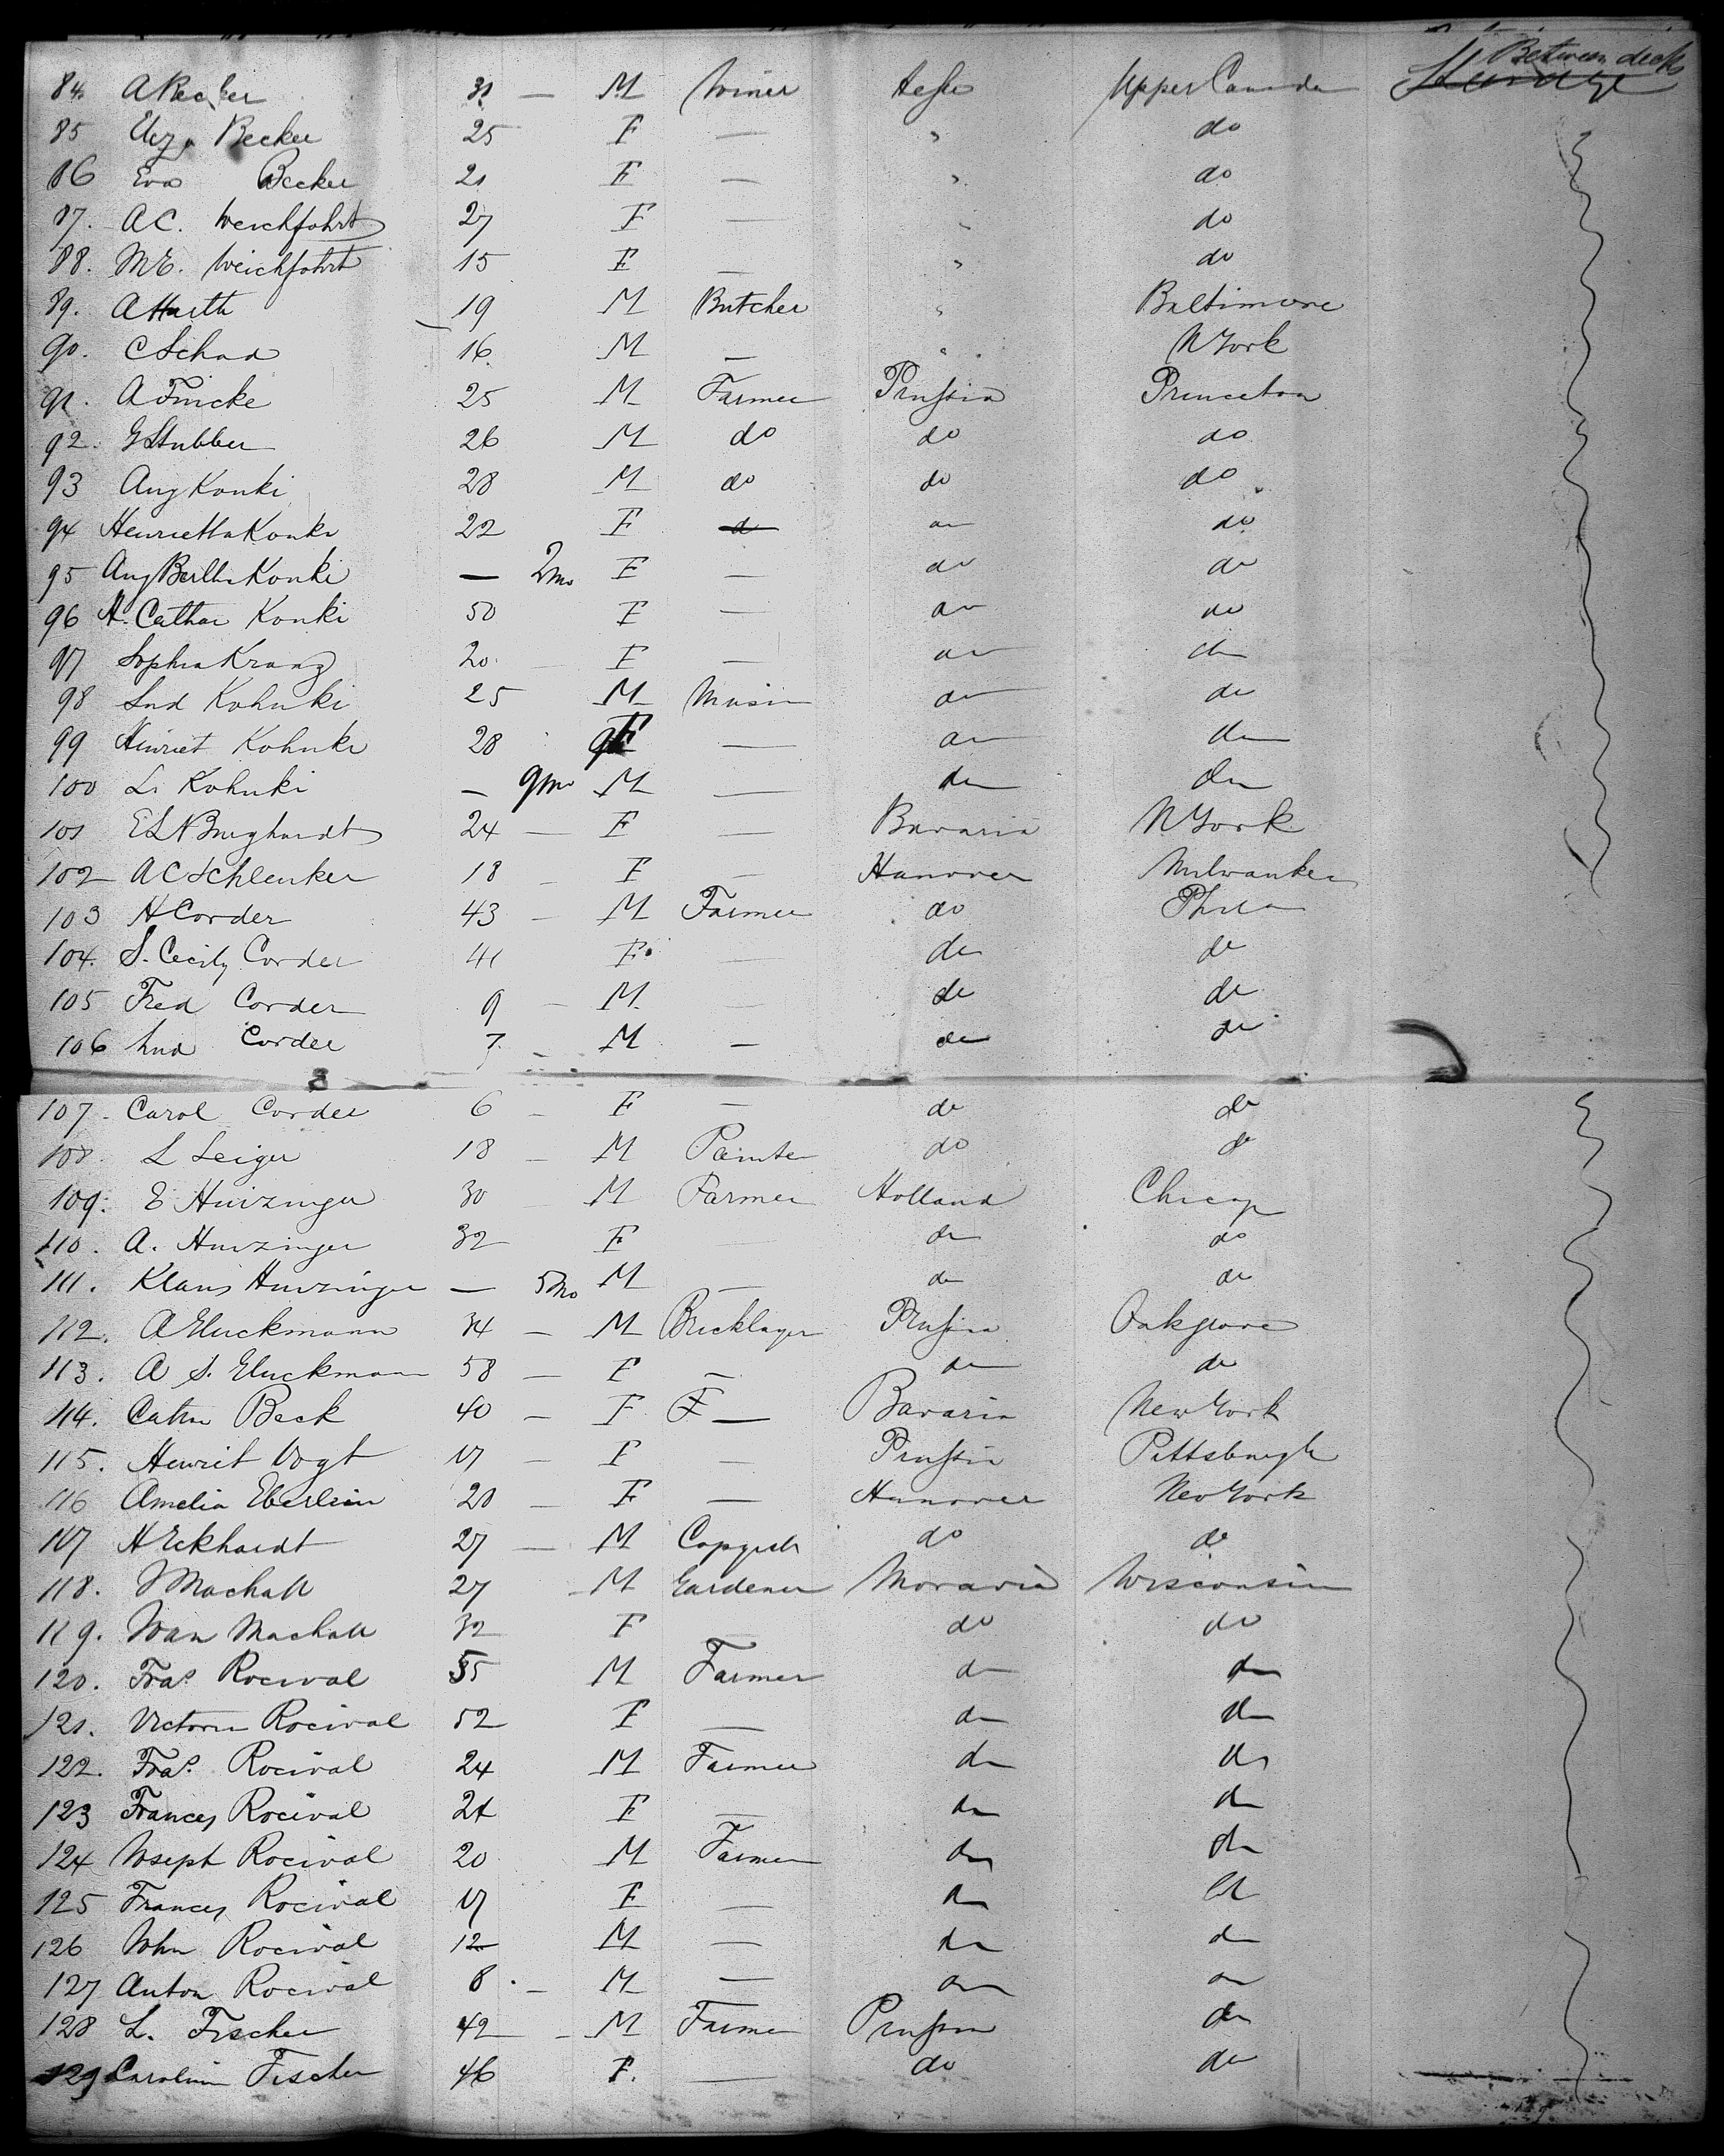 Between decks
84. A Becker 31 — M Joiner Hesse Upper Canada Steerage
85 Eliza Becker 25 F — " do
86 Eva Becker 21 F — " do
87. A C. Weichfohrt 27 F — " do
88. M E. Weichfohrt 15 F — " do
89. A Harth 19 M Butcher " Baltimore
90. C Schad 16 M — " N York
91. A Fincke 25 M Farmer Prussia Princeton
92. G Stubber 26 M do do do
93 Aug Konki 28 M do do do
94 Henrietta Konki 22 F do do
95 Aug Berth Konki — 2mo F — do do
96 H. Cathar Konki 50 F — do do
97 Sophia Kranz 20 — F — do do
98 Lud Kohnki 25 M do do
99 Henriet Kohnki 28 F — do do
100 L Kohnki — 9mo M — do do
101 E L N Burghardt 24 — F — Bavaria N York
102 A C Schlenker 18 — F — Hanover Milwaukee
103 H Corder 43 — M Farmer do Phila
104. S. Cecily Corder 41 F. — do do
105 Fred Corder 9 — M — do do
106 Lud Corder 7 M — do do
107. Carol Corder 6 — F — do do
108. L Leiger 18 — M Painter do do
109. E Huizinger 30 M Farmer Holland Chicago
110. A. Huizinger 32 F — do do
111. Klaus Huizinger — 5mo M — do do
112. A Gluckmann 34 — M Bricklayer Prussia Oakgrove
113. A S. Gluckmann 58 — F — do do
114. Cathn Beck 40 — F F — Bavaria New York
115. Henriet Vogt 17 — F — Prussia Pittsburgh
116 Amelia Eberlein 20 — F — Hanover New York
117 H Eckhardt 27 — M do do
118. J Machall 27 M Gardener Moravia Wisconsin
119. Joan Machall 32 F — do do
120. Fras Rocival 55 M Farmer do do
121. Victoria Rocival 52 F — do do
122. Fras Rocival 24 M Farmer do do
123 Frances Rocival 21 F — do do
124 Joseph Rocival 20 M Farmer do do
125 Frances Rocival 17 F — do do
126 John Rocival 12 M — do do
127 Anton Rocival 8. — M — do do
128 L. Fischer 42 — M Farmer Prussia do
129 Carolin Fischer 46 F. — do do